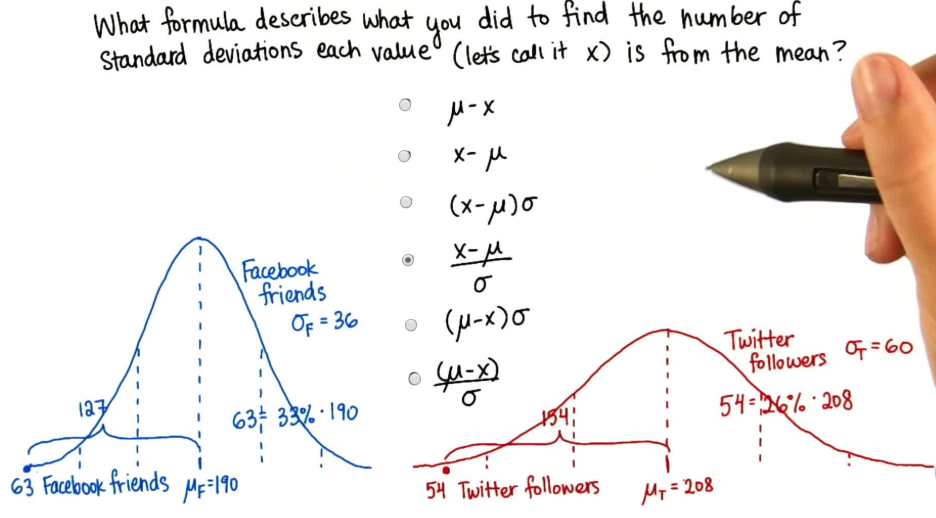 What formula describes what you did to find the number of
standard deviations each value (let's call it x) is from the mean?
μ-x
x-μ
(x-μ)σ
x-μ
σ
(μ-x)σ
(μ-x)
σ
Facebook
friends
σF = 36
127
63 = 33% · 190
63 Facebook friends μF=190
Twitter
followers σT = 60
154
54 = 26% · 208
54 Twitter followers μT = 208